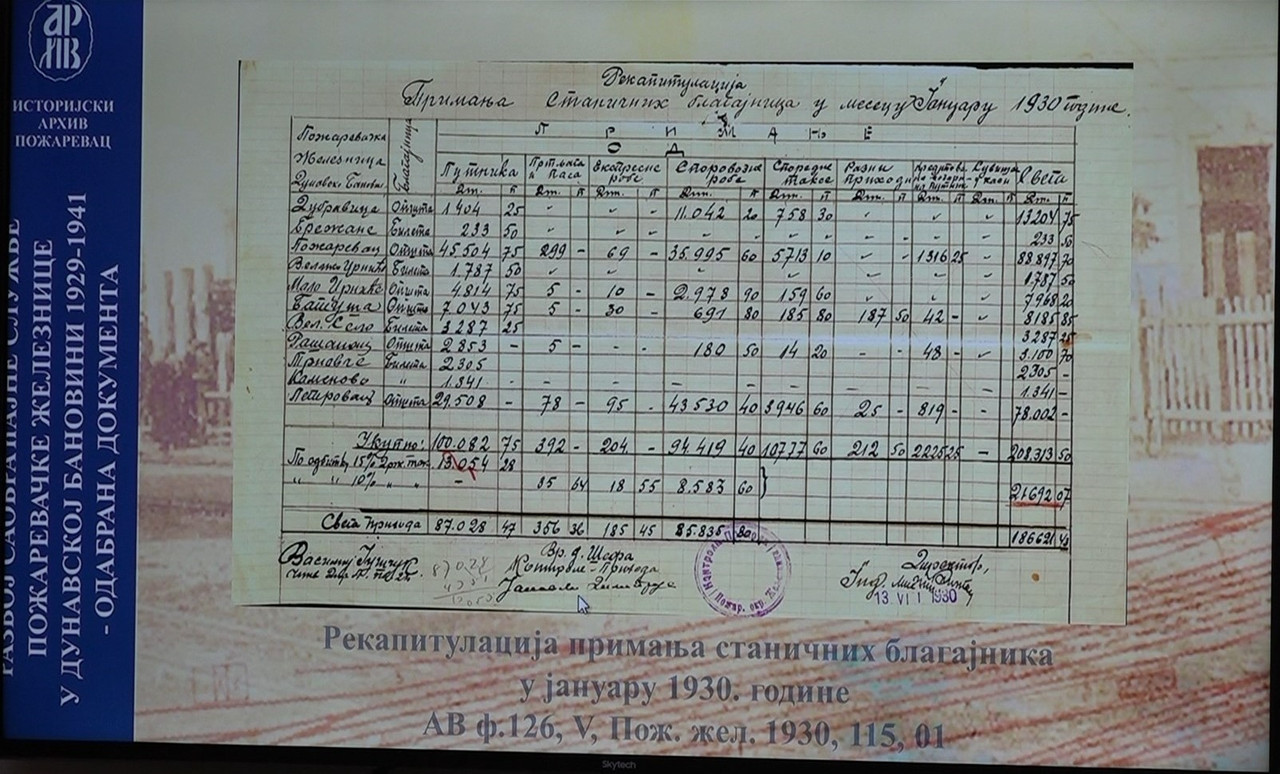 АРХИВ
ИСТОРИЈСКИ
АРХИВ
ПОЖАРЕВАЦ
РАЗВОЈ САОБРАЋАЈНЕ СЛУЖБЕ
ПОЖАРЕВАЧКЕ ЖЕЛЕЗНИЦЕ
У ДУНАВСКОЈ БАНОВИНИ 1929-1941
- ОДАБРАНА ДОКУМЕНТА
Рекапитулација
Примања станичних благајница у месецу Јануару 1930 године.
Пожаревачка Железница Дунавске Бановине Благајница П Р И М А Њ Е
О Д
Путника Пртљага и Паса Експресне робе Споровозне робе Споредне таксе Разни приходи Свега
Дин. п Дин. п Дин. п Дин. п Дин. п Дин. п Дин. п Дин. п Дин. п
Дубравица Општа 1404 25 11.042 20 758 30 13204 75
Брежане Билета 233 50 233 50
Пожаревац Општа 45.504 75 299 - 69 - 35.995 60 5713 10 1316 25 88897 70
Велико Црниће Билета 1.787 50 1.787 50
Мало Црниће Општа 4814 75 5 - 10 - 2.978 90 159 60 7968 20
Општа 7043 75 5 - 30 - 691 80 185 80 187 50 42 - 8185 85
Вел. Село Билета 3287 25 3.287 25
Рашанац Општа 2853 - 5 - - - 180 50 14 20 - - 48 - 3.100 70
Трнавче Билета 2305 2305 -
Каменово " 1.341 - 1.341 -
Петровац Општа 29.508 - 78 - 95 - 43530 40 3946 60 25 - 819 - 78.002 -
Укупно: 100.082 75 392 - 204 - 94.419 40 10777 60 212 50 2225 25 - 208.313 50
По одбитку 15% држ. так. 13.054 28
" " 10% " " - 35 64 18 55 8.583 60 } 21692 07
Свега прихода 87.028 47 356 36 185 45 85.835 80 186621 43
Вр. д. Шефа Директор,
Контроле Прихода
13 VI I 1930
Рекапитулација примања станичних благајника
у јануару 1930. године
АВ ф.126, V, Пож. жел. 1930, 115, 01
Skytech